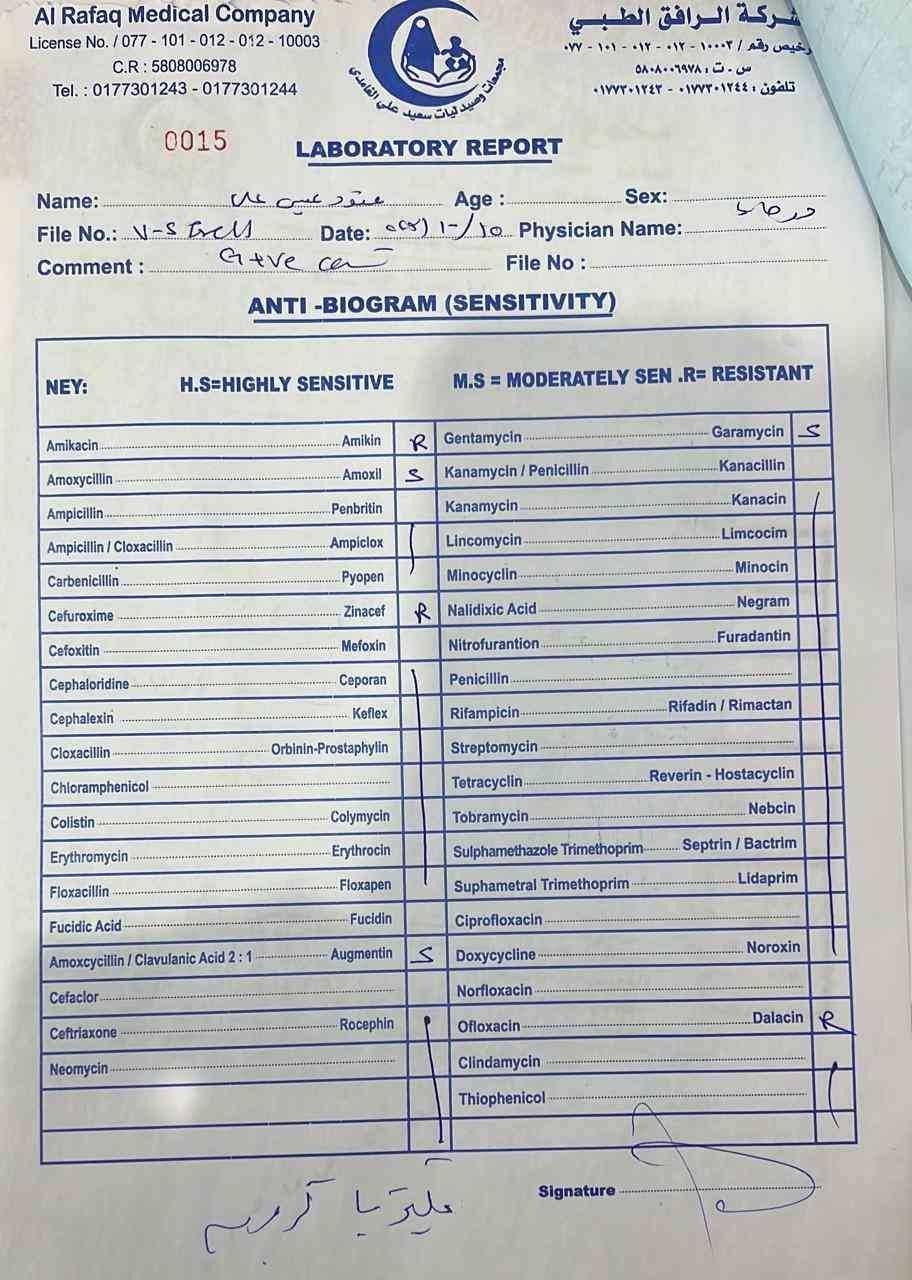 Al Rafaq Medical Company
License No. / 077 - 101 - 012 - 012 - 10003
C.R : 5808006978
Tel. : 0177301243 - 0177301244
شركة الرافق الطبي
رخيص رقم / ١٠٠٠٣ - ٠١٢ - ٠١٢ - ١٠١ - ٠٧٧
س . ت : ٥٨٠٨٠٠٦٩٧٨
تلفون : ٠١٧٧٣٠١٢٤٤ - ٠١٧٧٣٠١٢٤٣
مجمعات وصيدليات سعيد علي الغامدي
0015
LABORATORY REPORT
Name: Age : Sex:
File No.: Date: Physician Name:
Comment : G+ve File No :
ANTI -BIOGRAM (SENSITIVITY)
NEY: H.S=HIGHLY SENSITIVE M.S = MODERATELY SEN .R= RESISTANT
Amikacin Amikin R Gentamycin Garamycin S
Amoxycillin Amoxil S Kanamycin / Penicillin Kanacillin
Ampicillin Penbritin Kanamycin Kanacin
Ampicillin / Cloxacillin Ampiclox Lincomycin Limcocim
Carbenicillin Pyopen Minocyclin Minocin
Cefuroxime Zinacef R Nalidixic Acid Negram
Cefoxitin Mefoxin Nitrofurantion Furadantin
Cephaloridine Ceporan Penicillin
Cephalexin Keflex Rifampicin Rifadin / Rimactan
Cloxacillin Orbinin-Prostaphylin Streptomycin
Chloramphenicol Tetracyclin Reverin - Hostacyclin
Colistin Colymycin Tobramycin Nebcin
Erythromycin Erythrocin Sulphamethazole Trimethoprim Septrin / Bactrim
Floxacillin Floxapen Suphametral Trimethoprim Lidaprim
Fucidic Acid Fucidin Ciprofloxacin
Amoxcycillin / Clavulanic Acid 2 : 1 Augmentin S Doxycycline Noroxin
Cefaclor Norfloxacin
Ceftriaxone Rocephin Ofloxacin Dalacin R
Neomycin Clindamycin
Thiophenicol
Signature